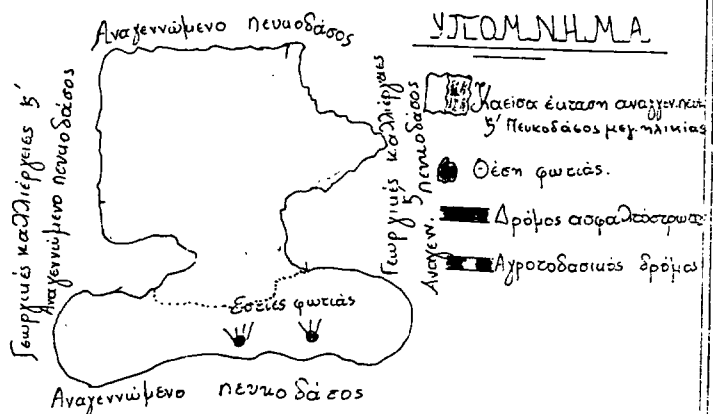 Αναγεννώμενο πευκοδάσος
Γεωργικές καλλιέργειες &
Αναγεννώμενο πευκοδάσος
Γεωργικές καλλιέργειες
& πευκοδάσος
Αναγεν.
Εστίες φωτιάς
Αναγεννώμενο πευκοδάσος
ΥΠΟΜΝΗΜΑ
έκταση αναγεν. πευκ
& Πευκοδάσος μεγ. ηλικίας
Θέση φωτιάς.
Δρόμος ασφαλτόστρωτ
Αγροτοδασικός δρόμος